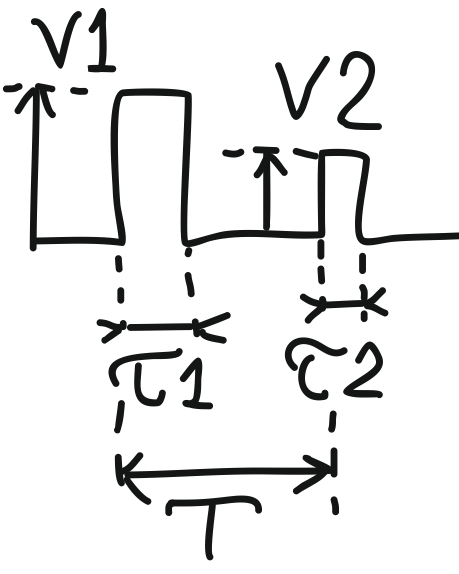 V1
V2
τ1
τ2
T